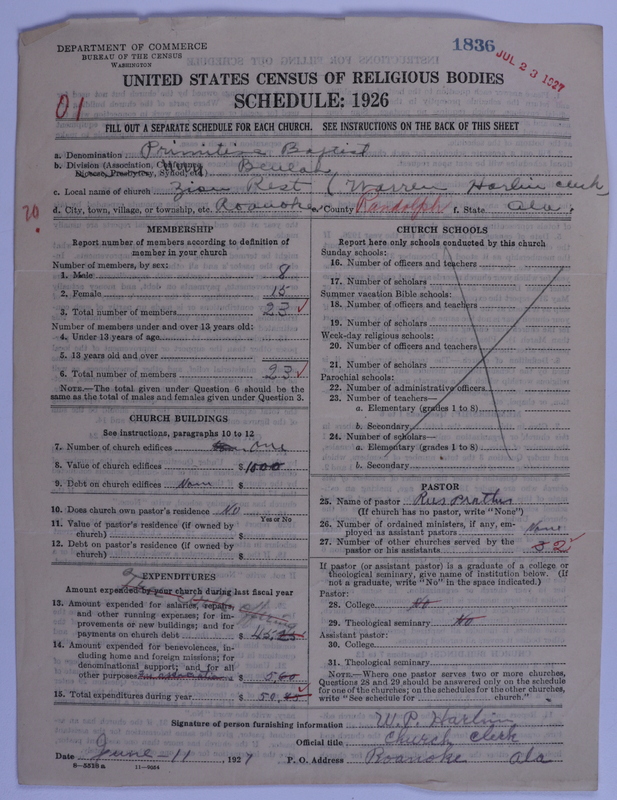 DEPARTMENT OF COMMERCE
BUREAU OF THE CENSUS
WASHINGTON
1836
JUL 23 1927
UNITED STATES CENSUS OF RELIGIOUS BODIES
SCHEDULE: 1926
01
FILL OUT A SEPARATE SCHEDULE FOR EACH CHURCH. SEE INSTRUCTIONS ON THE BACK OF THIS SHEET
a. Denomination Primitive Baptist
b. Division (Association, Conference, Diocese, Presbytery, Synod, etc.) Beulah
c. Local name of church Zion Rest (Warren Harlin clerk
d. City, town, village, or township, etc. Roanoke e. County Randolph f. State Ala
MEMBERSHIP
Report number of members according to definition of
member in your church
Number of members, by sex:
1. Male 8
2. Female 15
3. Total number of members 23
Number of members under and over 13 years old:
4. Under 13 years of age
5. 13 years old and over
6. Total number of members 23
NOTE.—The total given under Question 6 should be the
same as the total of males and females given under Question 3.
CHURCH BUILDINGS
See instructions, paragraphs 10 to 12
7. Number of church edifices one
8. Value of church edifices $1000
9. Debt on church edifices $
10. Does church own pastor's residence No
Yes or No
11. Value of pastor's residence (if owned by
church) $
12. Debt on pastor's residence (if owned by
church) $
EXPENDITURES
Amount expended by your church during last fiscal year
13. Amount expended for salaries, repairs,
and other running expenses; for im-
provements or new buildings; and for
payments on church debt $ 45.
14. Amount expended for benevolences, in-
cluding home and foreign missions; for
denominational support; and for all
other purposes $ 5.00
15. Total expenditures during year $ 50.
CHURCH SCHOOLS
Report here only schools conducted by this church
Sunday schools:
16. Number of officers and teachers
17. Number of scholars
Summer vacation Bible schools:
18. Number of officers and teachers
19. Number of scholars
Week-day religious schools:
20. Number of officers and teachers
21. Number of scholars
Parochial schools:
22. Number of administrative officers
23. Number of teachers—
a. Elementary (grades 1 to 8)
b. Secondary
24. Number of scholars—
a. Elementary (grades 1 to 8)
b. Secondary
PASTOR
25. Name of pastor
(If church has no pastor, write "None")
26. Number of ordained ministers, if any, em-
ployed as assistant pastors None
27. Number of other churches served by the
pastor or his assistants 2
If pastor (or assistant pastor) is a graduate of a college or
theological seminary, give name of institution below. (If
not a graduate, write "No" in the space indicated.)
Pastor:
28. College No
29. Theological seminary No
Assistant pastor:
30. College
31. Theological seminary
NOTE.—Where one pastor serves two or more churches,
Questions 28 and 29 should be answered only on the schedule
for one of the churches; on the schedules for the other churches,
write "See schedule for church."
Signature of person furnishing information W. P. Harlin
Official title Church Clerk
Date June—11, 1927 P. O. Address Roanoke Ala
8—5318a 11—9034